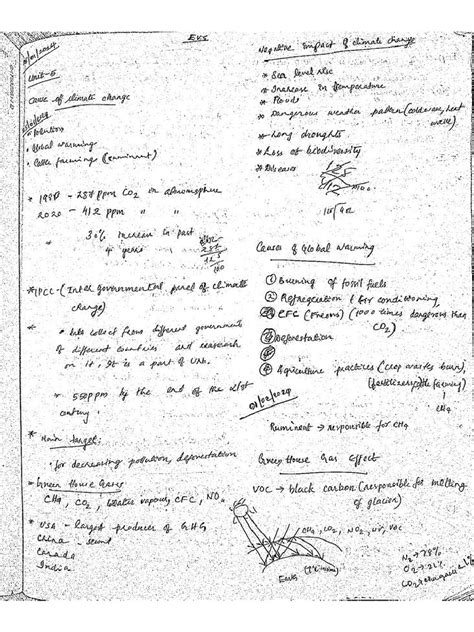 EVS
Unit-5
Cause of climate change
• Pollution
• Global warming
• Cattle farming (ruminant)
* 1980 - ppm CO2 in atmosphere
2020 - 412 ppm " "
30% increase in past
4
* IPCC - (Inter governmental panel of climate
change)
• collect from different governments
of different countries and research
on it. It is a part of
• 550 ppm by the end of the 21st
century.
* Main target:
for decreasing pollution, deforestation
• Green House Gases
CH4, CO2, water vapour, CFC, NO
* USA - largest producer of GHG
China - second
Canada
India
Negative impact of climate change
* Sea level rise
* Increase in temperature
* Floods
* Dangerous weather pattern (cold wave, heat
wave)
* Long droughts
* Loss of biodiversity
* Diseases
Causes of Global Warming
① Burning of fossil fuels
② Refrigeration & Air conditioning
CFC (Freons) (1000 times dangerous than
CO2)
Deforestation
④ Agriculture practices (crop wastes burn),
CH4
01/02/2024
Ruminent → responsible for CH4
Green House Gas Effect
VOC → black carbon (responsible for melting
of glacier)
CH4, CO2, NO2, VOC
N2 → 78%
O2 → 21%